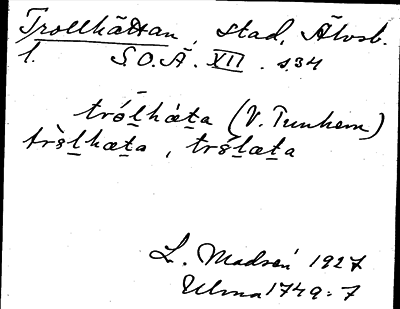 Trollhättan, stad, Älvsb.
l. S.O.Ä. XII. s. 34
trólhæ̀ta (V. Tunhem)
tròlhæta, trólæta
L. Madsén 1927
Ulma 1749:7